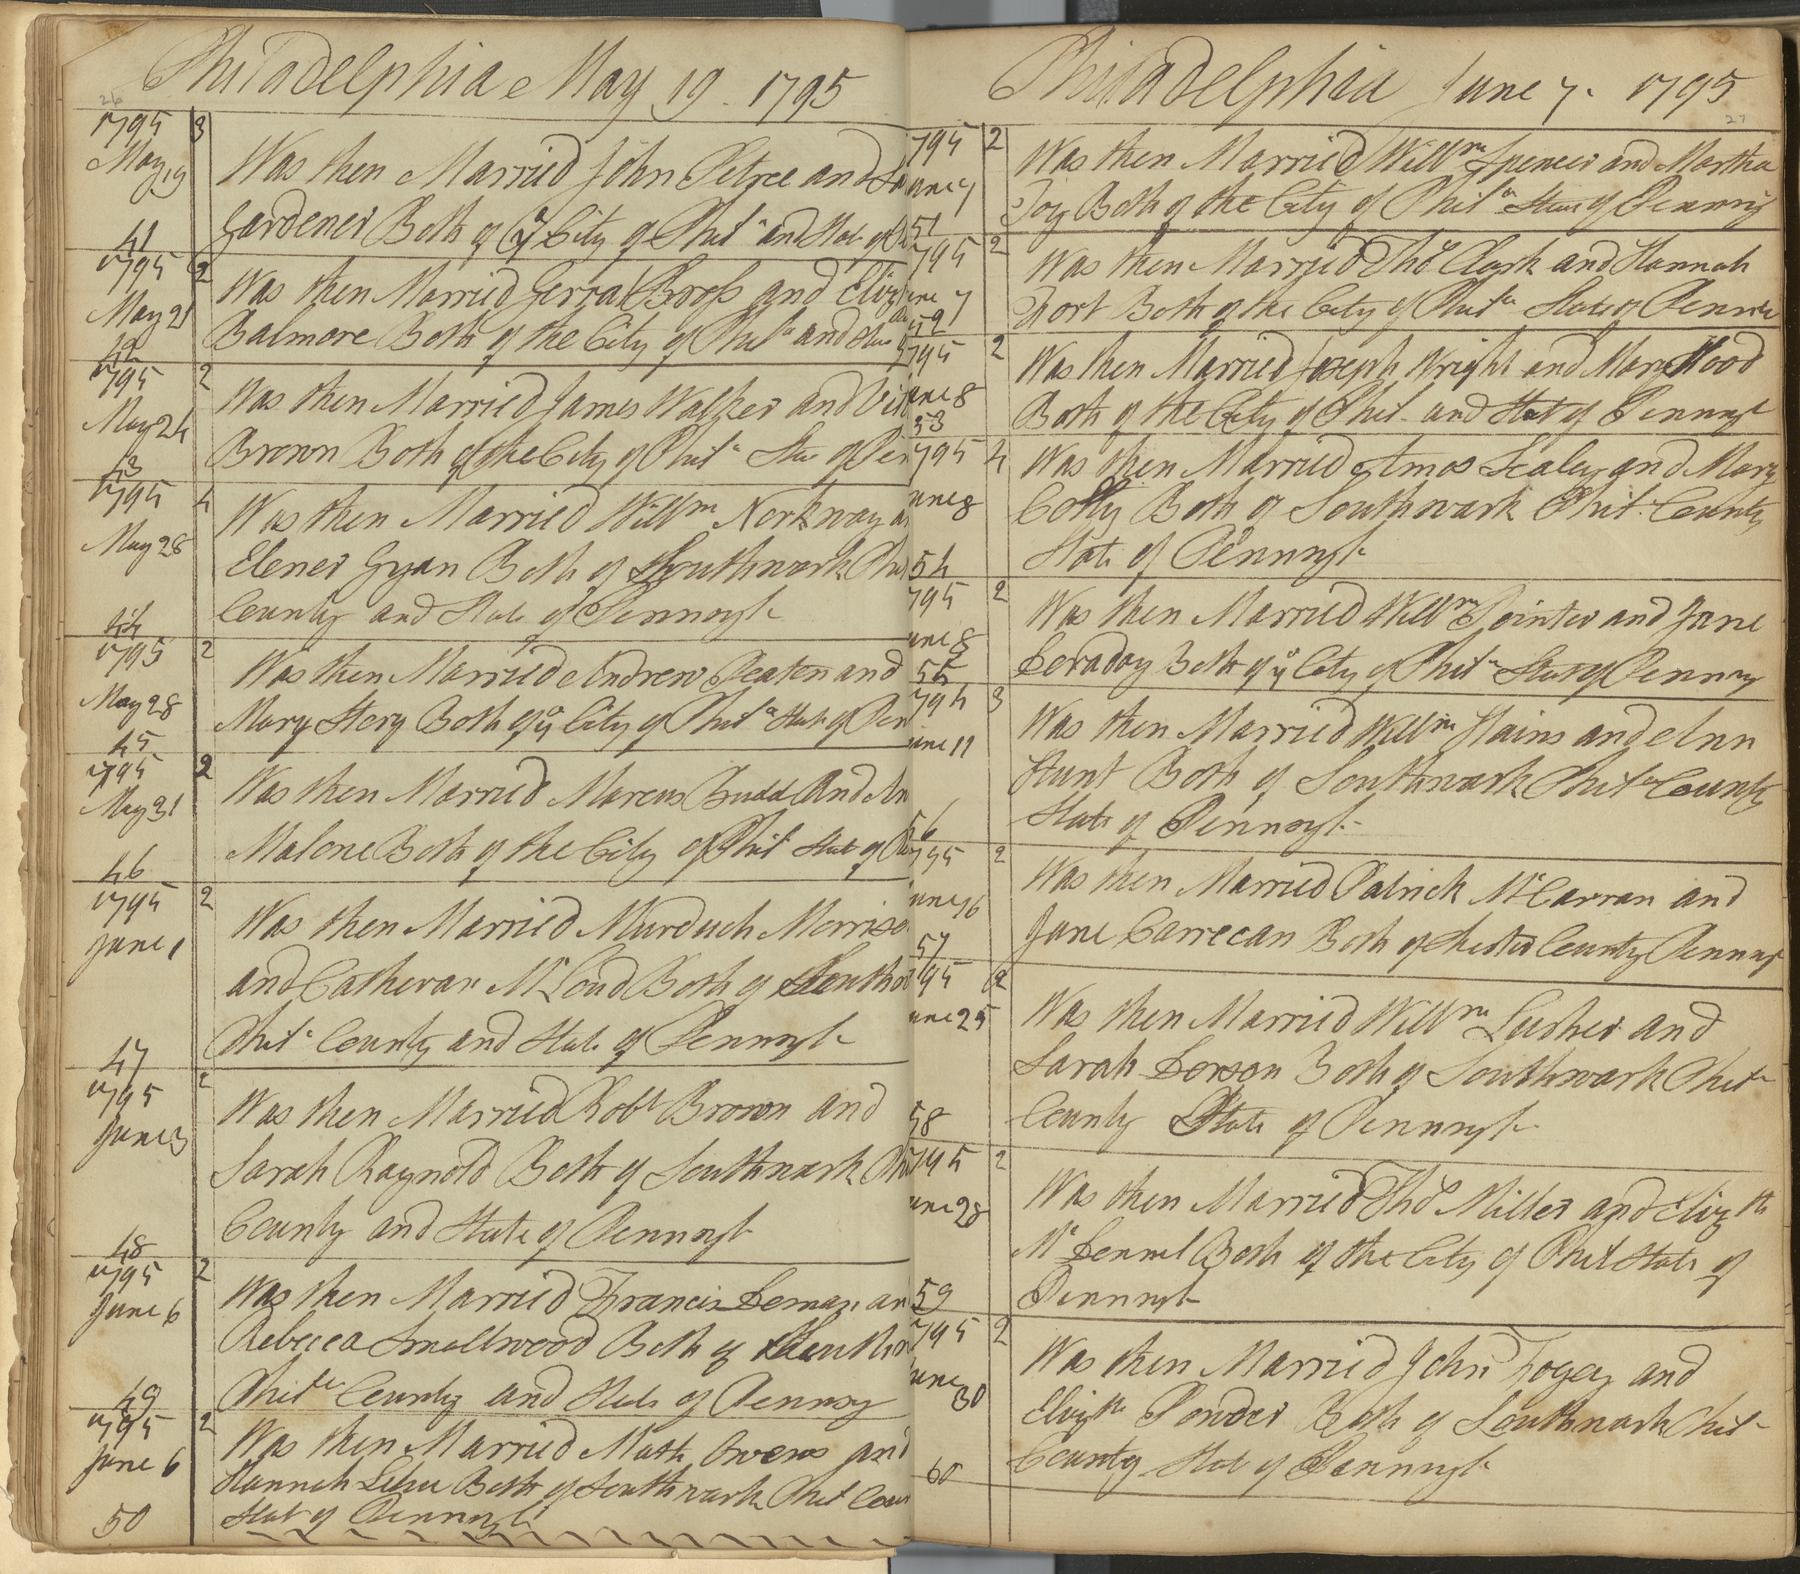 Philadelphia May 19. 1795
26
1795 3
May 19 Was then Married John Petree and
Gardener Both of ye City of Phila and State of
41
1795 2
May 21 Was then Married Jerral Bross and Eliz
Balmore Both of the City of Phila and State
42
1795 2
May 24 Was then Married James Walker and
Brown Both of the City of Phila Stae of Pen
43
1795 4
May 28 Was then Married Willm Norkway a
Elener Gyan Both of Southwark Phi
County and State of Pennsyl
44
1795 2
May 28 Was then Married Andrew Peaten and
Mary Stery Both of ye City of Phila State of Pen
45
1795 2
May 31 Was then Married Marcus Budd And An
Malone Both of the City of Phil State of
46
1795 2
June 1 Was then Married Murduch Morriso
and Catheran McLoud Both of Southw
Phila County and State of Pennsyl
47
1795 2
June 3 Was then Married Robt Brown and
Sarah Raynold Both of Southwark Phi
County and State of Pennsyl
48
1795 2
June 6 Was then Married Francis Leman an
Rebecca Smallwood Both of Southw
Phila County and State of Pennsy
49
1795 2
June 6 Was then Married Math Owens and
Hannah Both of Southwark Phil Coun
State of Pennsyl
50
Philadelphia June 7. 1795
27
795 2
une 7 Was then Married Willm Spencer and Martha
Toy Both of the City of Phila State of Pennsy
51
795 2
une 7 Was then Married Thos Clark and Hannah
Fort Both of the City of Phila State of Penns
52
795 2
une 8 Was then Married Joseph Wright and Mary Hood
Both of the City of Phil and State of Pennsyl
53
795 4
une 8 Was then Married Amos Sealey and Mary
Both of Southwark Phil County
State of Pennsyl
54
795 2
une 8 Was then Married Willm Pointer and Jane
Loraday Both of ye City of Phila State of Pennsy
55
795 3
une 11 Was then Married Willm Hains and Ann
Hunt Both of Southwark Phila County
State of Pennsyl
56
795 2
une 16 Was then Married Patrick McCarran and
Jane Carrecan Both of Chester County Pennsy
57
795 2
une 25 Was then Married Willm Lusher and
Sarah Lorson Both of Southwark Phila
County State of Pennsyl
58
795 2
une 28 Was then Married Thos Miller and Elizth
Mc Lennel Both of the City of Phil State of
Pennsyl
59
795 2
une 30 Was then Married John Fogey and
Elizth Ponder Both of Southwark Phila
County State of Pennsyl
60